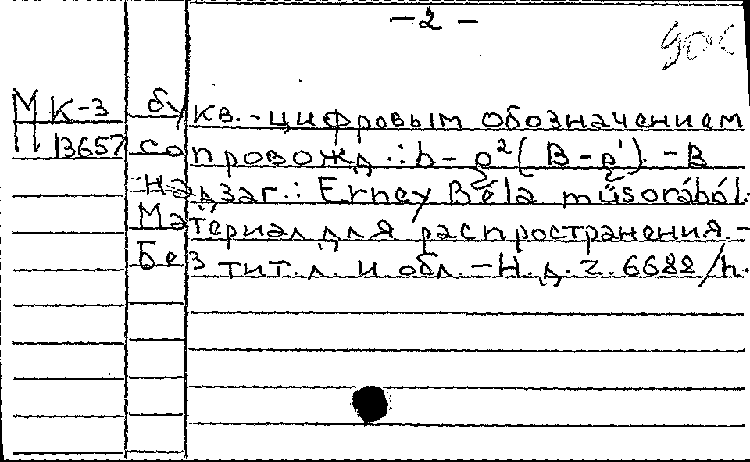 – 2 –
М К-3 букв.-цифровым обозначением
II 13657 сопровожд.: b – e²(B – e¹). – В
надзаг.: Erney Béla műsorából.
Материал для распространения. –
Без тит. л. и обл. – Н. д. Z. 6682/h.